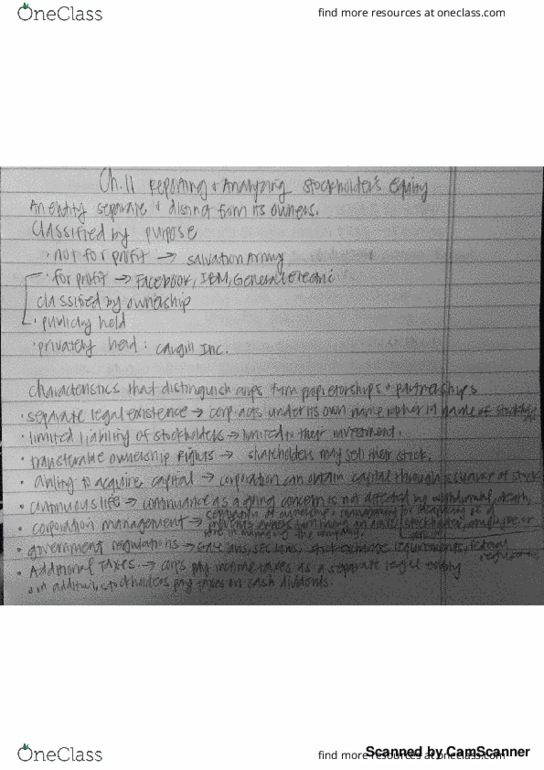 OneClass
find more resources at oneclass.com
Ch.11 Reporting + Analyzing Stockholder's Equity
An entity separate + distinct from its owners.
Classified by purpose
· not for profit → Salvation Army
· for profit → Facebook, IBM, General Electric
classified by ownership
· publicly held
· privately held : Cargill Inc.
characteristics that distinguish corps from proprietorships + partnerships
· separate legal existence → corp acts under its own name rather in name of
· limited liability of stockholders → limited to their investment.
· transferable ownership rights → shareholders may sell their stock.
· ability to acquire capital → corporation can obtain capital through issuance of stock
· continuous life → continuance as a going concern is not affected by withdrawal, death,
separation of ownership + management
· corporation management → prevents owners from having an active
role in managing the company.
stockholder, employee or
· government regulations → state laws, sec laws, stock exchange requirements, federal
· Additional Taxes → corps pay income taxes as a separate legal entity
· in addition, stockholders pay taxes on cash dividends.
OneClass
find more resources at oneclass.com
Scanned by CamScanner